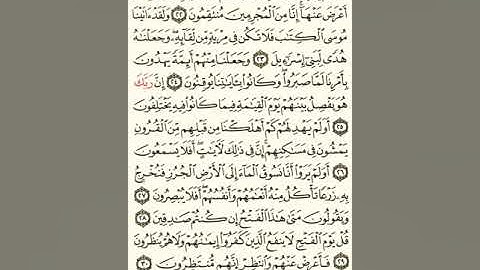 أَعْرَضَ عَنْهَا إِنَّا مِنَ الْمُجْرِمِينَ مُنتَقِمُونَ ٢٢ وَلَقَدْ ءَاتَيْنَا
مُوسَى الْكِتَٰبَ فَلَا تَكُن فِي مِرْيَةٍ مِّن لِّقَآئِهِ وَجَعَلْنَٰهُ
هُدًى لِّبَنِي إِسْرَٰٓءِيلَ ٢٣ وَجَعَلْنَا مِنْهُمْ أَئِمَّةً يَهْدُونَ
بِأَمْرِنَا لَمَّا صَبَرُوا۟ وَكَانُوا۟ بِـَٔايَٰتِنَا يُوقِنُونَ ٢٤ إِنَّ رَبَّكَ
هُوَ يَفْصِلُ بَيْنَهُمْ يَوْمَ الْقِيَٰمَةِ فِيمَا كَانُوا۟ فِيهِ يَخْتَلِفُونَ
٢٥ أَوَلَمْ يَهْدِ لَهُمْ كَمْ أَهْلَكْنَا مِن قَبْلِهِم مِّنَ الْقُرُونِ
يَمْشُونَ فِي مَسَٰكِنِهِمْ إِنَّ فِي ذَٰلِكَ لَـَٔايَٰتٍ أَفَلَا يَسْمَعُونَ
٢٦ أَوَلَمْ يَرَوْا۟ أَنَّا نَسُوقُ الْمَآءَ إِلَى الْأَرْضِ الْجُرُزِ فَنُخْرِجُ
بِهِ زَرْعًا تَأْكُلُ مِنْهُ أَنْعَٰمُهُمْ وَأَنفُسُهُمْ أَفَلَا يُبْصِرُونَ ٢٧
وَيَقُولُونَ مَتَىٰ هَٰذَا الْفَتْحُ إِن كُنتُمْ صَٰدِقِينَ ٢٨
قُلْ يَوْمَ الْفَتْحِ لَا يَنفَعُ الَّذِينَ كَفَرُوٓا۟ إِيمَٰنُهُمْ وَلَا هُمْ يُنظَرُونَ
٢٩ فَأَعْرِضْ عَنْهُمْ وَانتَظِرْ إِنَّهُم مُّنتَظِرُونَ ٣٠